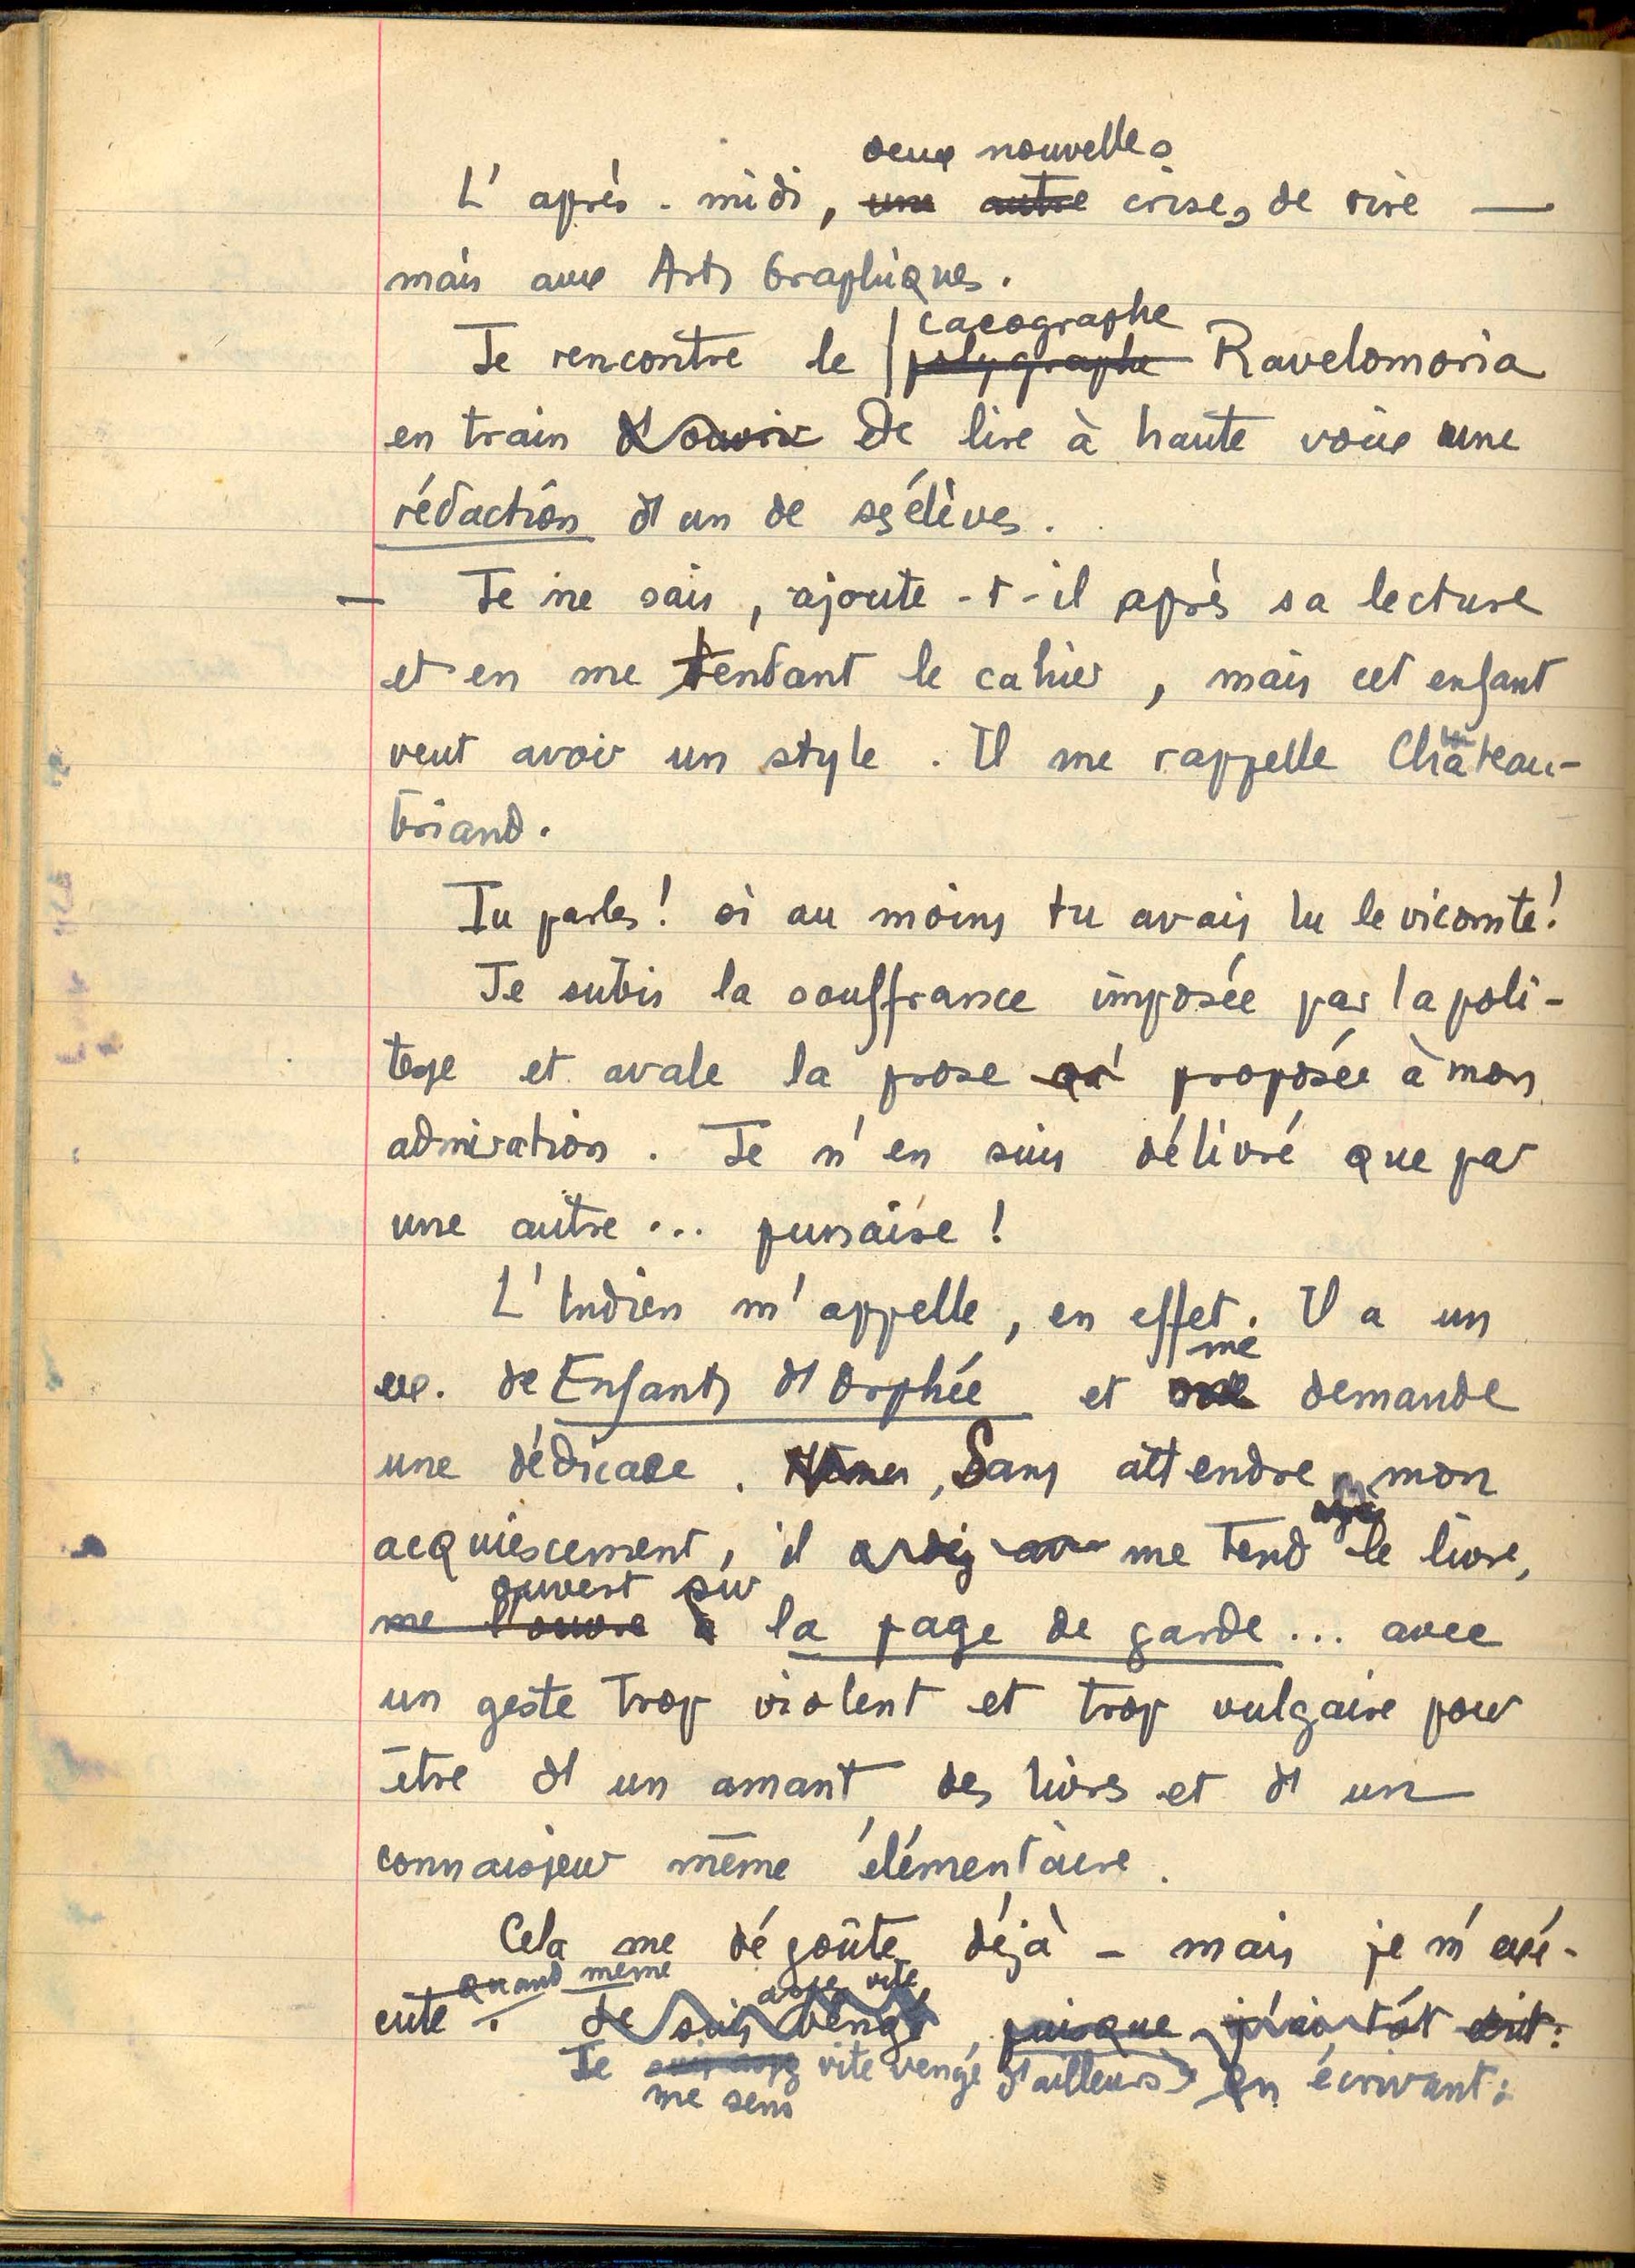 deux nouvelles
L'après-midi, une autre crises de rire —
mais aux Arts Graphiques.
cacographe
Je rencontre le polygraphe Ravelomoria
en train d'ouvrir de lire à haute voix une
rédaction d'un de ses élèves.
— Je ne sais, ajoute-t-il après sa lecture
et en me tendant le cahier, mais cet enfant
veut avoir un style. Il me rappelle Château-
briand.
Tu parles! si au moins tu avais lu le vicomte!
Je subis la souffrance imposée par la poli-
tesse et avale la prose qu' proposée à mon
admiration. Je n'en suis délivré que par
une autre... punaise!
L'Indien m'appelle, en effet. Il a un
me
ex. de Enfants d'Orphée et demande
une dédicace. , Sans attendre mon
acquiescement, il me tend le livre,
ouvert sur
me l'ouvre à la page de garde... avec
un geste trop violent et trop vulgaire pour
être d'un amant des livres et d'un
connaisseur même élémentaire.
Cela me dégoûte déjà - mais je m'exé-
quand même assez vite
cute. Je suis vengé, puisque j'ai tôt écrit:
Je suis assez vite vengé d'ailleurs en écrivant:
me sens